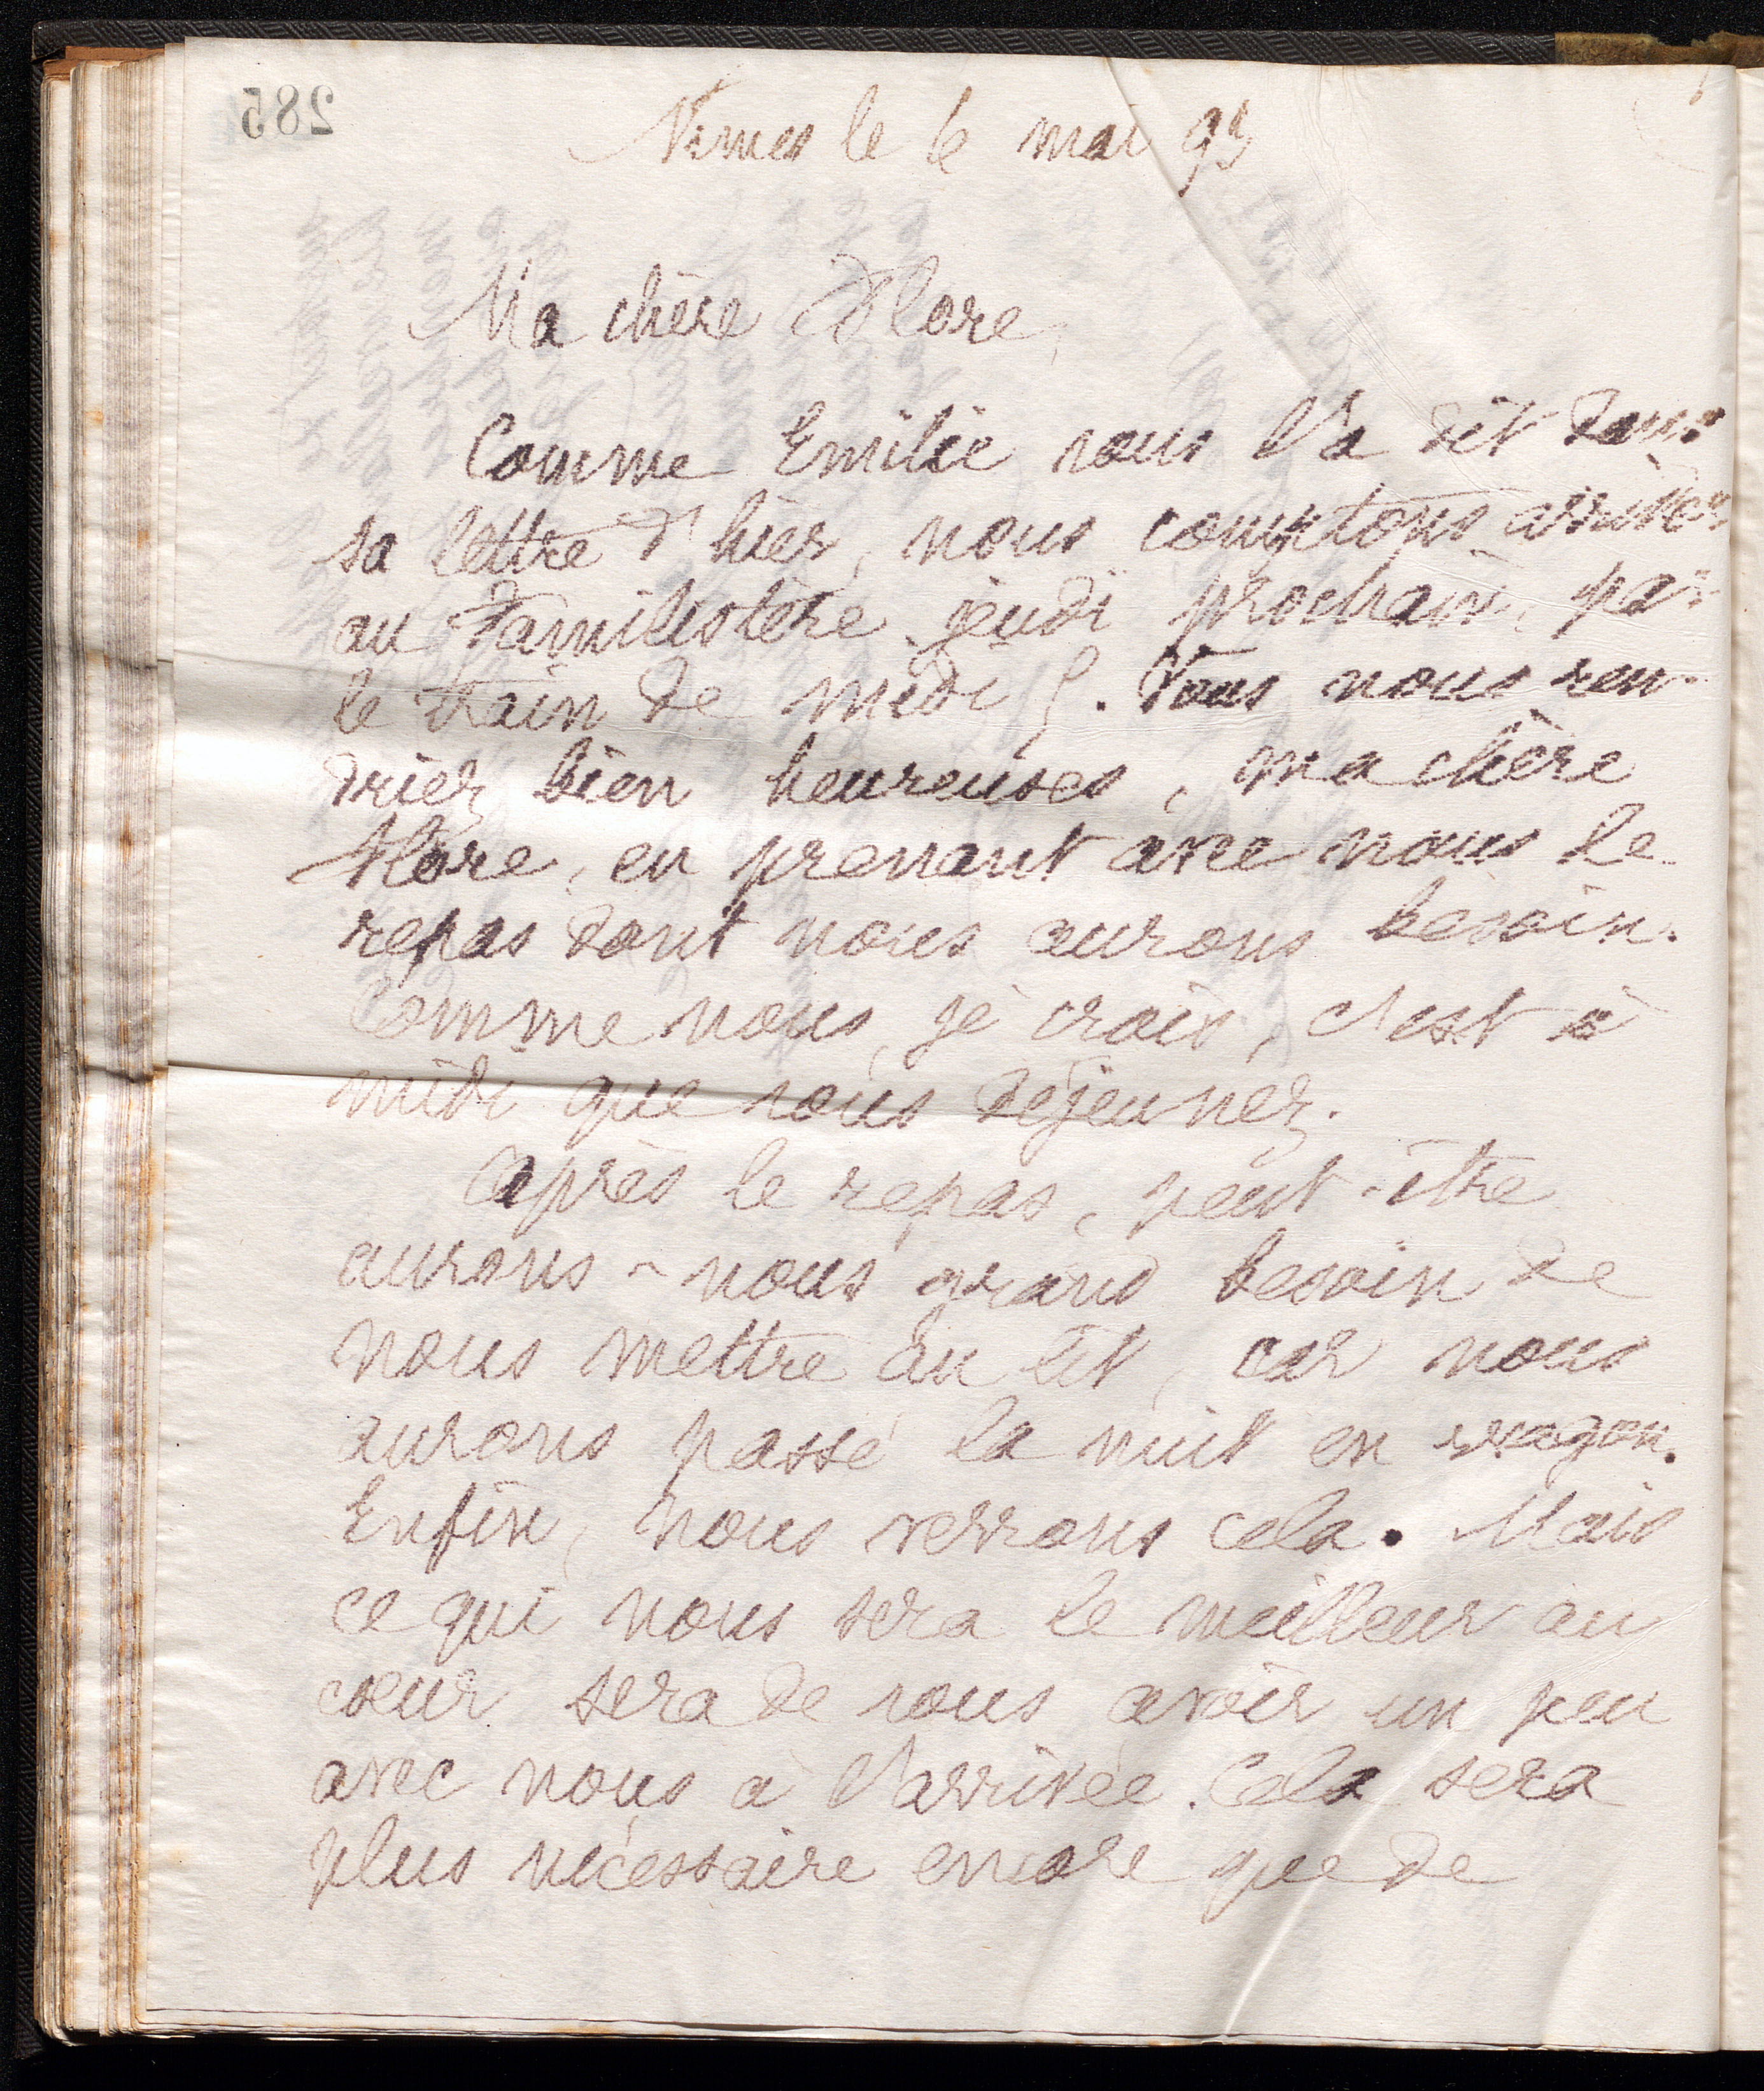 285
Nimes le 6 mai 95
Ma chère Flore,
Comme Emilie vous l'a dit dans
sa lettre d'hier, nous comptons arriver
au Familistère jeudi prochain, par
le train de midi 5. Vous nous ren-
driez bien heureuses, ma chère
Flore, en prenant avec nous le
repas dont nous aurons besoin.
Comme nous, je crois, c'est à
midi que vous déjeunez.
Après le repas, peut-être
aurons-nous grand besoin de
nous mettre au lit, car nous
aurons passé la nuit en wagon.
Enfin, nous verrons cela. Mais
ce qui nous sera le meilleur au
cœur sera de vous avoir un peu
avec nous à l'arrivée. Cela sera
plus nécessaire encore que de